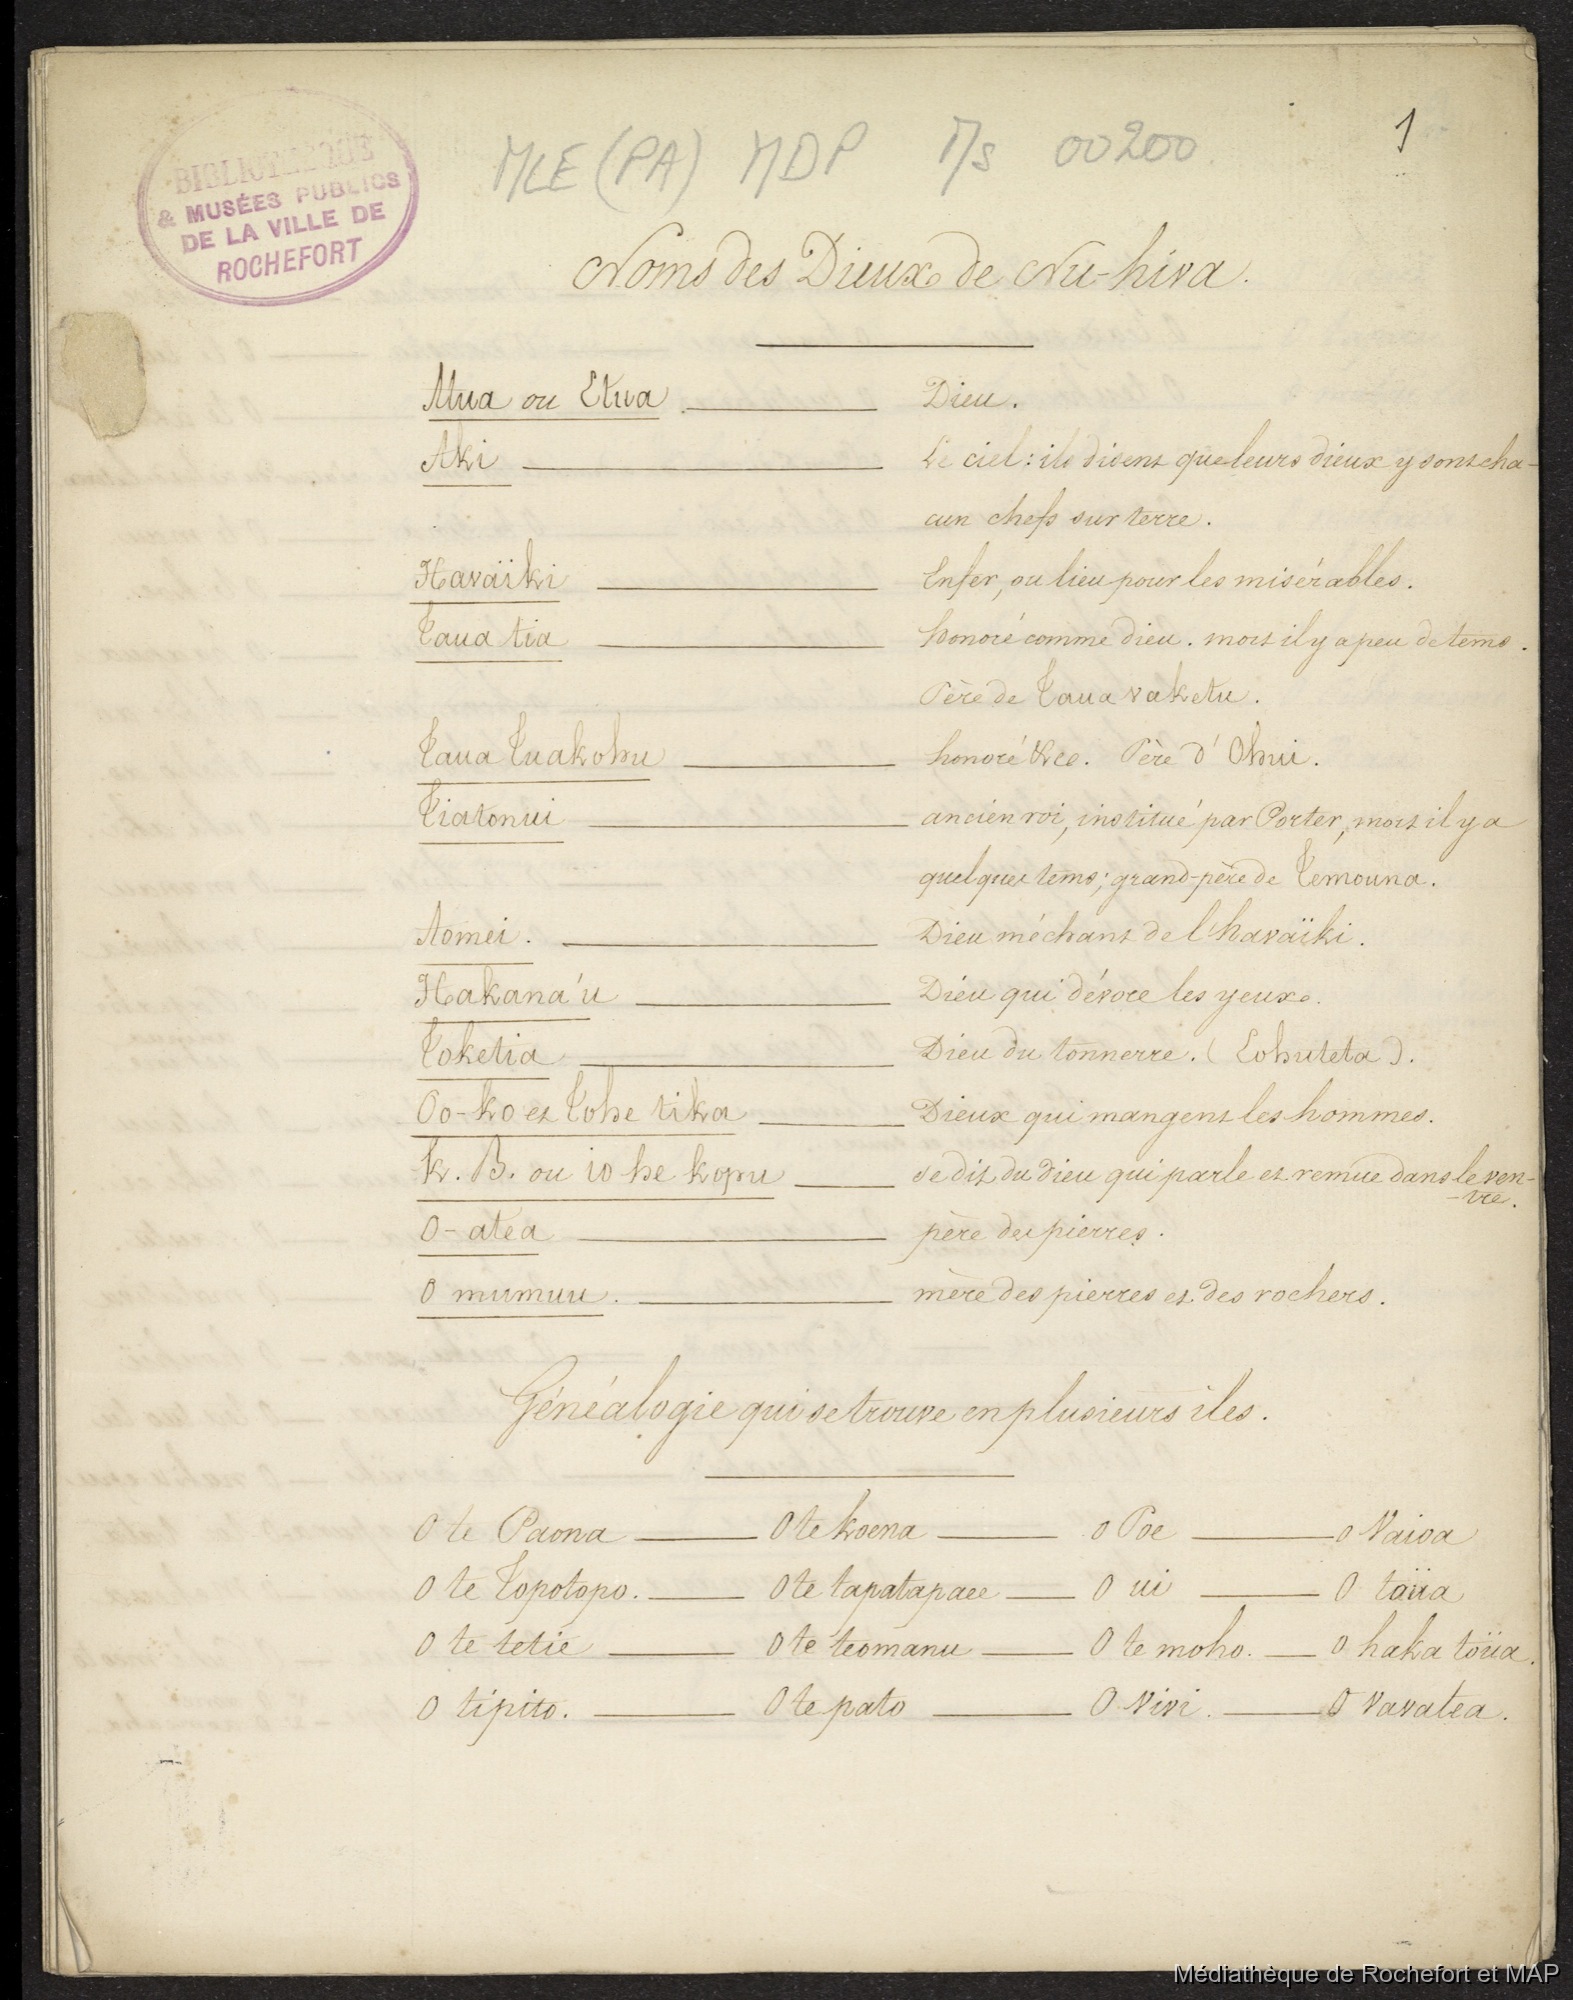 1
MLE (PA) MDP Ms 00200
BIBLIOTHEQUE
& MUSÉES PUBLICS
DE LA VILLE DE
ROCHEFORT
Noms des Dieux de Nu-hiva.
Atua ou Etua. Dieu.
Aki Le ciel : ils disent que leurs dieux y sont cha-
cun chefs sur terre.
Havaïki Enfer, ou lieu pour les misérables.
Taua tia honoré comme dieu. mort il y a peu de tems.
Père de Taua vaketu.
Taua Tuakohu honoré &ce. Père d' Ohui.
Tiatonui ancien roi, institué par Porter, mort il y a
quelques tems; grand-père de Temouna.
Aomei. Dieu méchant de l'havaïki.
Hakana'u Dieu qui dévore les yeux.
Toketia Dieu du tonnerre. (Tohuteta).
Oo-ko et Tohe tika Dieux qui mangent les hommes.
k. B. ou io he kopu se dit du dieu qui parle et remue dans le ven-
-tre.
O-atea père des pierres.
O mumuu. mère des pierres et des rochers.
Généalogie qui se trouve en plusieurs iles.
O te Paona O te koena o Poe o Vaioa
O te Topotopo. O te tapatapaee O ui O toüa
O te tetie O te teomanu O te moho. O haka toüa.
O tipito. O te pato O vivi. O vavatea.
Médiathèque de Rochefort et MAP